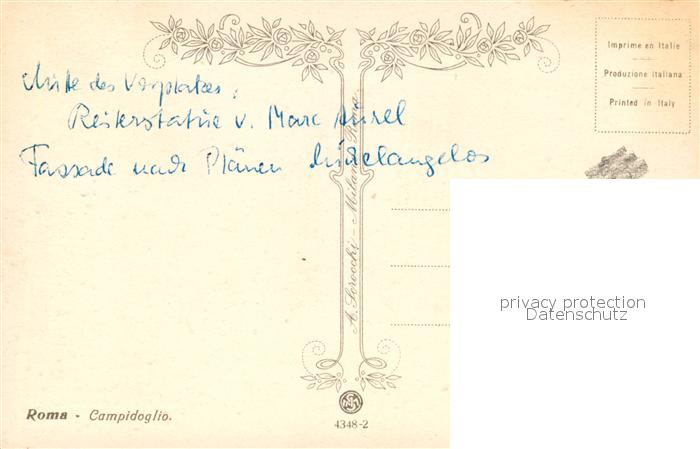 Imprime en Italie
Produzione italiana
Printed in Italy
Mitte des Vorplatzes:
Reiterstatue v. Marc Aurel
Fassade nach Plänen Michelangelos
A. Scrocchi - Milano
privacy protection
Datenschutz
Roma - Campidoglio.
4348-2